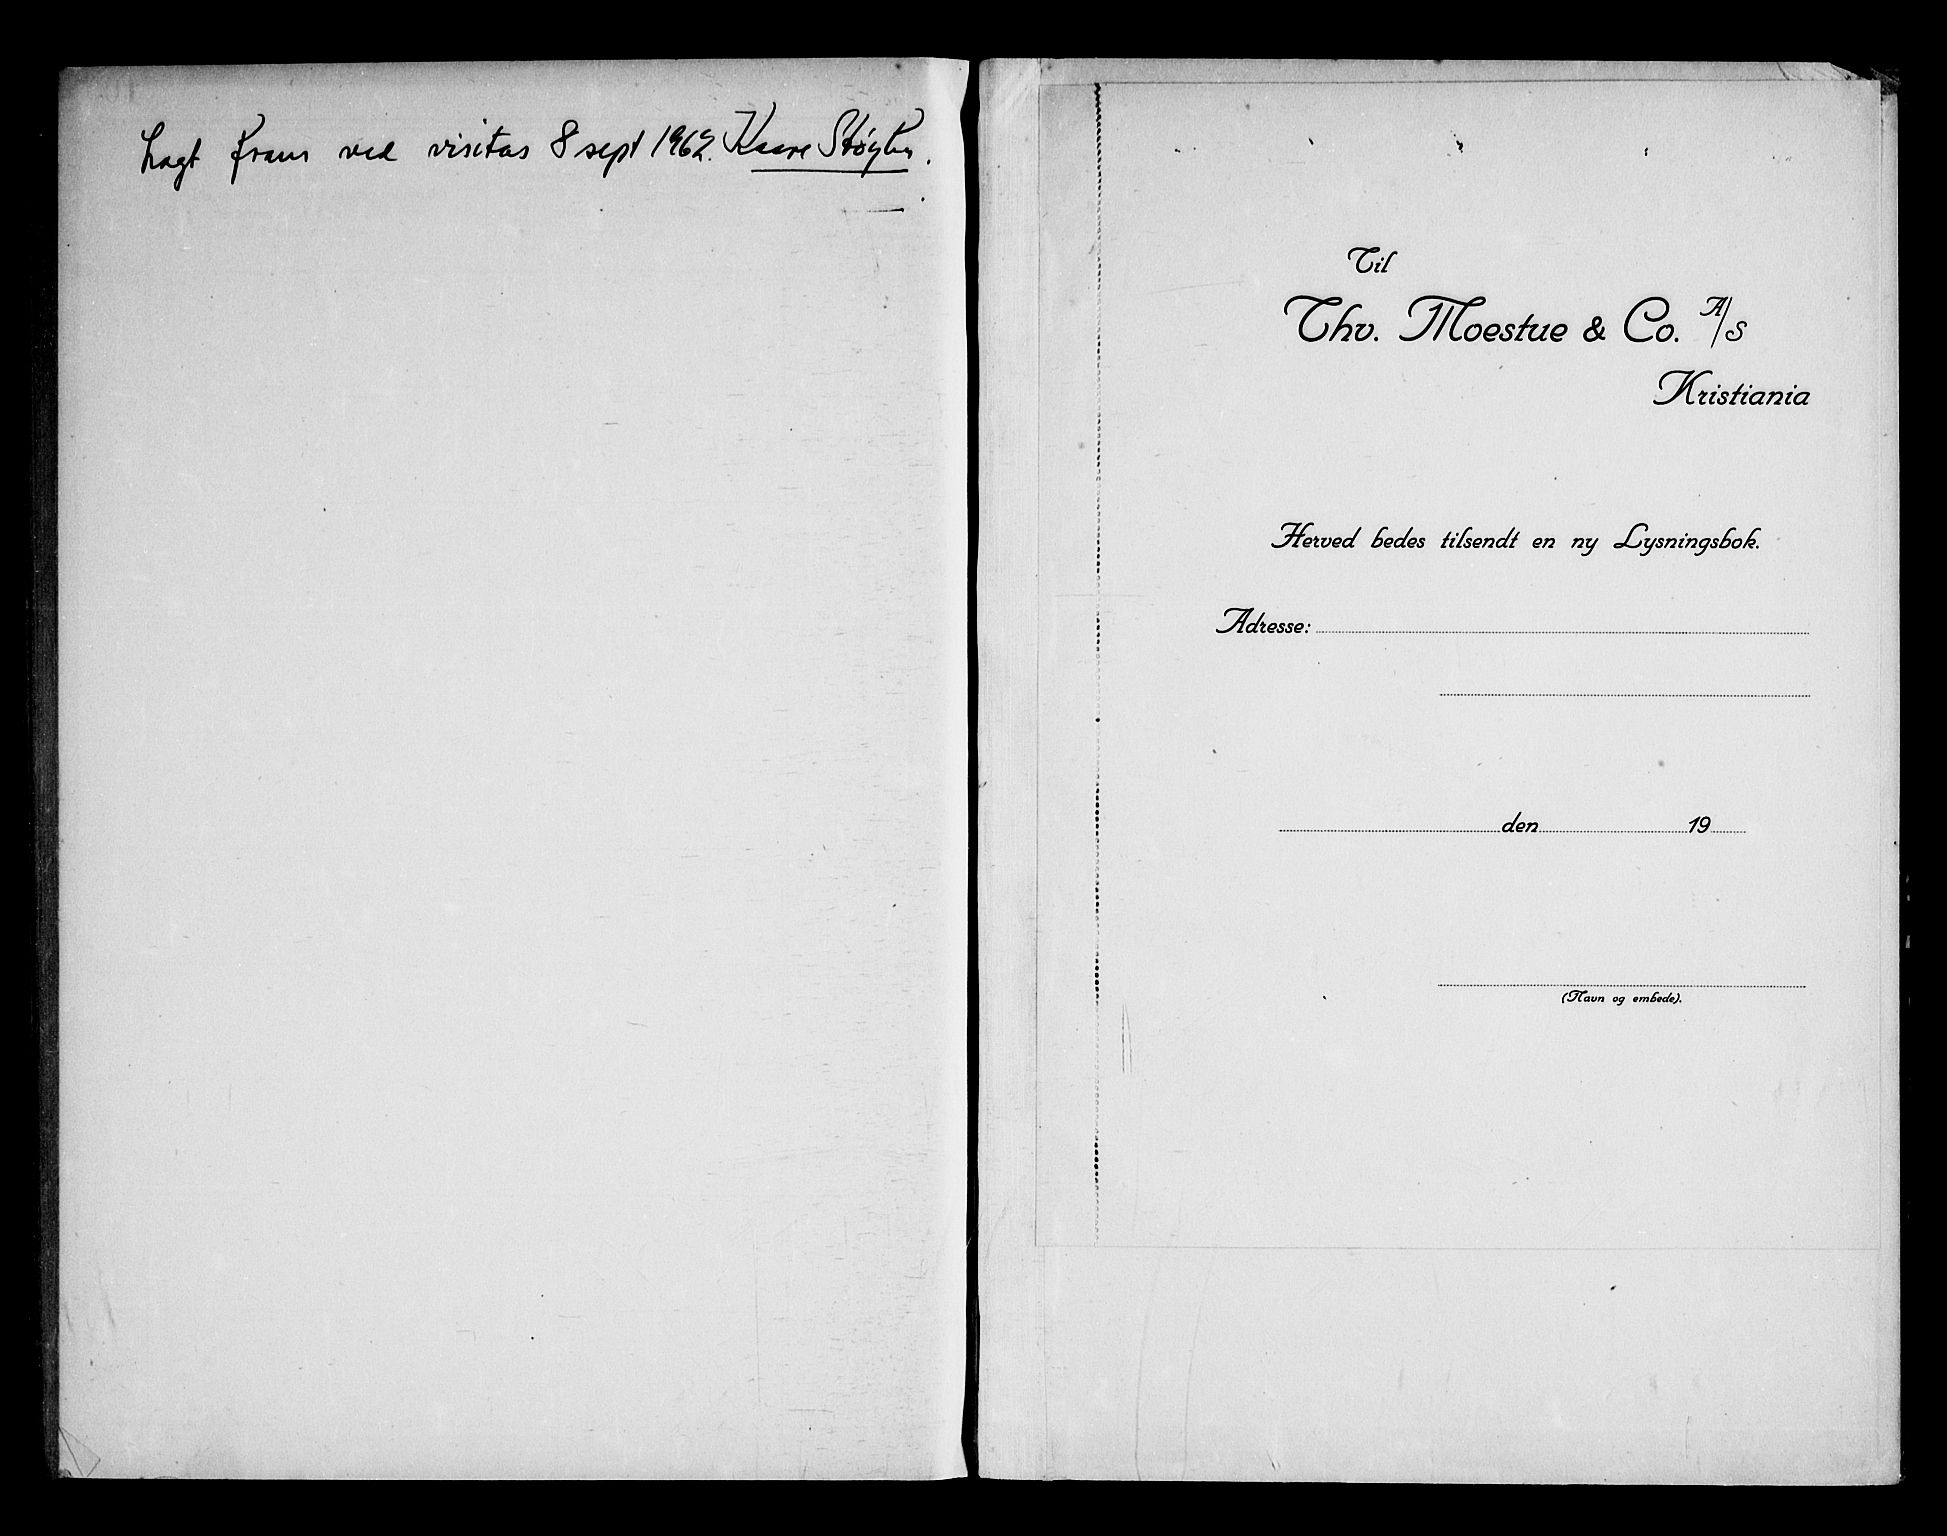 Lagt fram ved visitas 8 sept 1962. Kaare Støylen.
Til
Thv. Moestue & Co. A/S
Kristiania
Herved bedes tilsendt en ny Lysningsbok.
Adresse:
den 19
(Navn og embede).